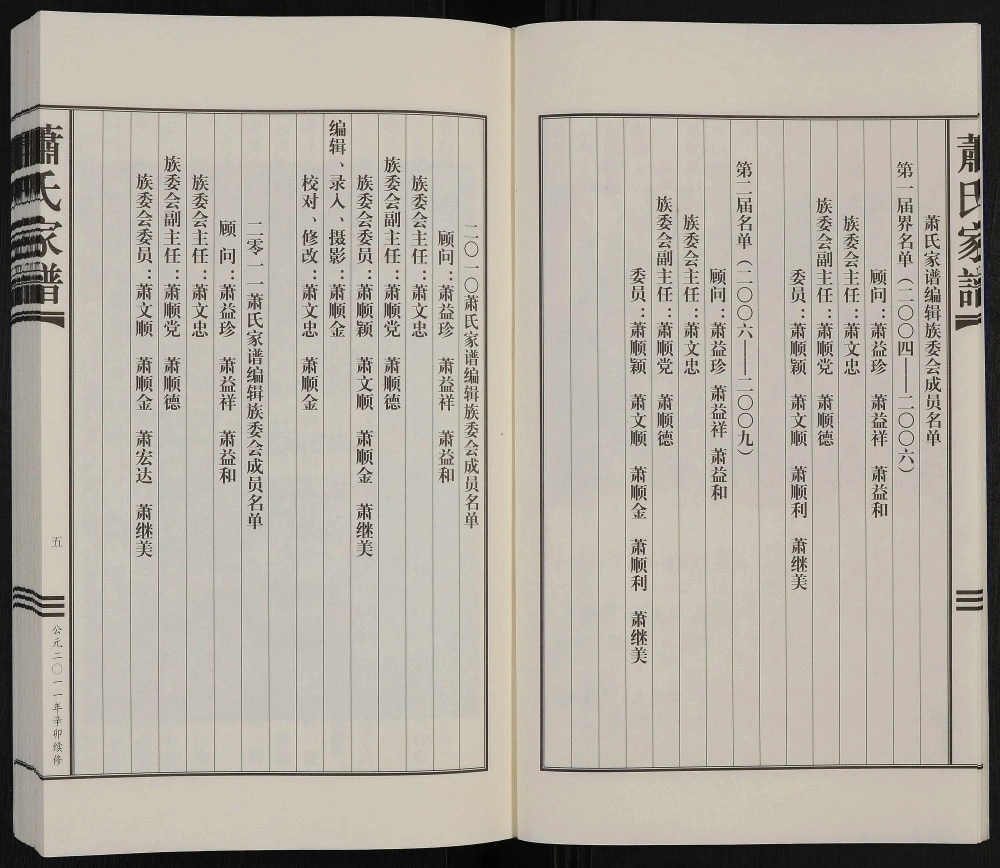 蕭氏家譜
萧氏家谱编辑族委会成员名单
第一届界名单（二〇〇四——二〇〇六）
顾问：萧益珍　萧益祥　萧益和
族委会主任：萧文忠
族委会副主任：萧顺党　萧顺德
委员：萧顺颖　萧文顺　萧顺利　萧继美
第二届名单（二〇〇六——二〇〇九）
顾问：萧益珍　萧益祥　萧益和
族委会主任：萧文忠
族委会副主任：萧顺党　萧顺德
委员：萧顺颖　萧文顺　萧顺金　萧顺利　萧继美
二〇一〇萧氏家谱编辑族委会成员名单
顾问：萧益珍　萧益祥　萧益和
族委会主任：萧文忠
族委会副主任：萧顺党　萧顺德
族委会委员：萧顺颖　萧文顺　萧顺金　萧继美
编辑、录入、摄影：萧顺金
校对、修改：萧文忠　萧顺金
二零一一萧氏家谱编辑族委会成员名单
顾　问：萧益珍　萧益祥　萧益和
族委会主任：萧文忠
族委会副主任：萧顺党　萧顺德
族委会委员：萧文顺　萧顺金　萧宏达　萧继美
蕭氏家譜
五
公元二〇一一年辛卯续修